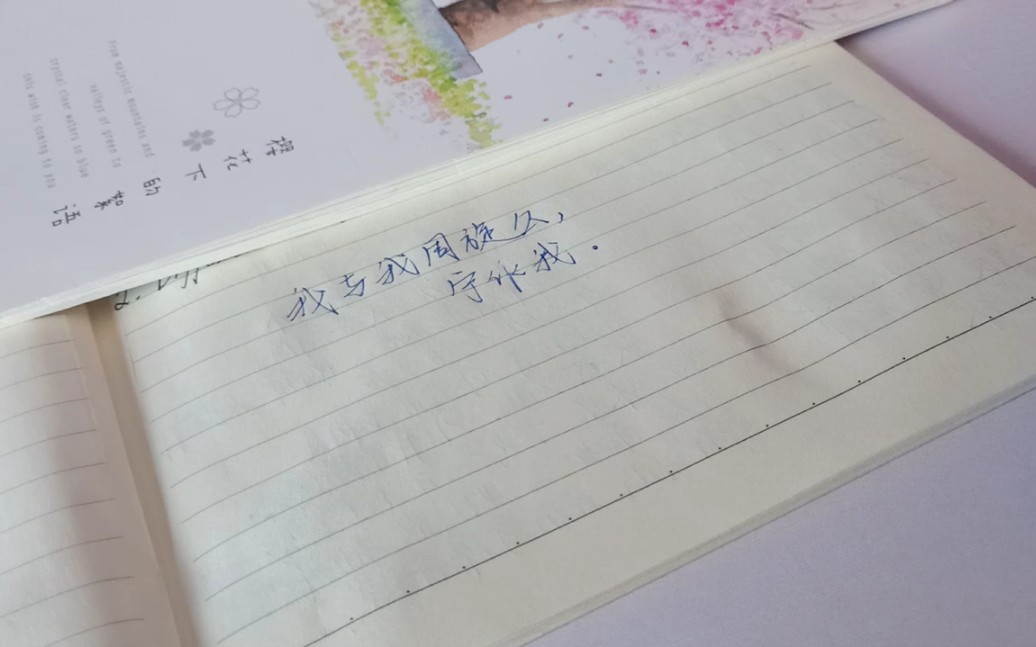 樱花下的絮语
From majestic mountains and
valleys of green to
crystal clear waters so blue
this wish is coming to you
2.
我与我周旋久,
宁作我.